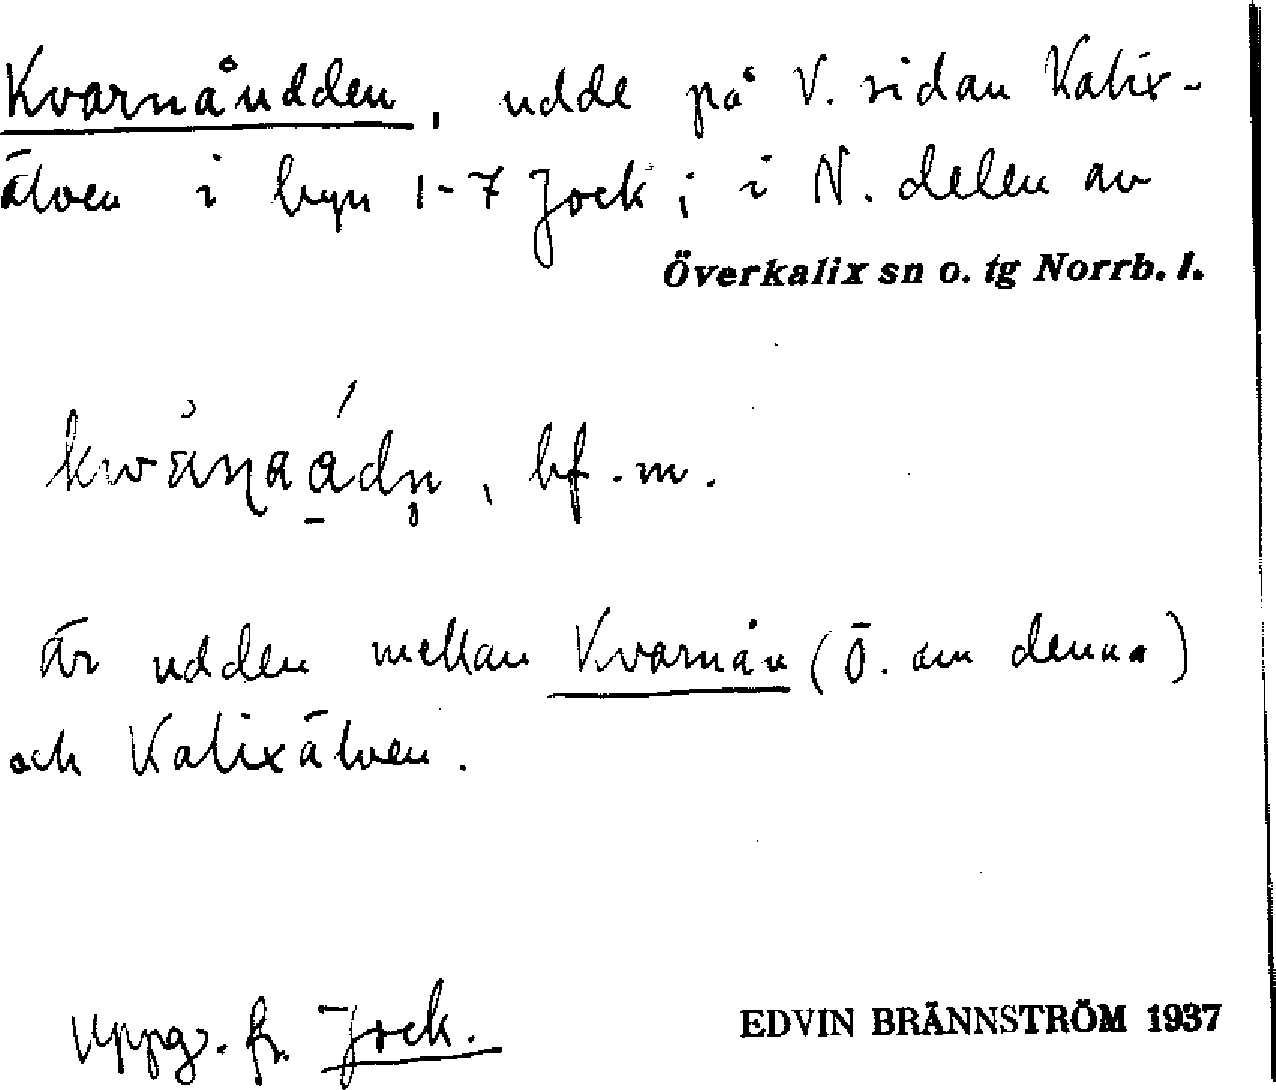 Kvarnåudden, udde på V. sidan Kalix-
älven i byn 1-7 Jock; i N. delen av
Överkalix sn o. tg Norrb. l.
bf. m.
är udden mellan Kvarnån (Ö. om denna)
och Kalixälven.
Uppg. fr. Jock.
EDVIN BRÄNNSTRÖM 1937